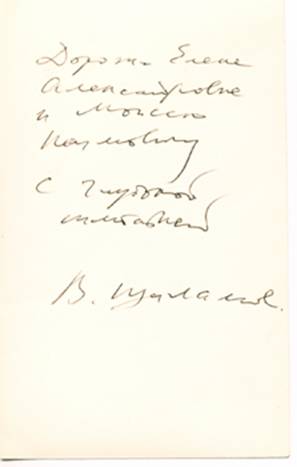 Дорогим Елене
Александровне
и Моисею
Наумовичу
С глубокой
симпатией
В. Шаламов.